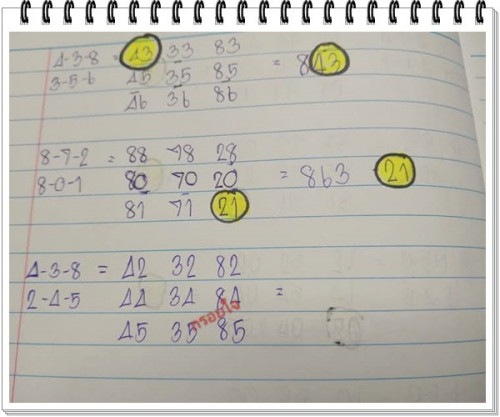 4-3-8 = 43 33 83
3-5-6 45 35 85 = 843
46 36 86
8-7-2 = 88 78 28
8-0-1 80 70 20 = 863 21
81 71 21
4-3-8 = 42 32 82
2-4-5 44 34 84 =
45 35 85
กรอยใจ